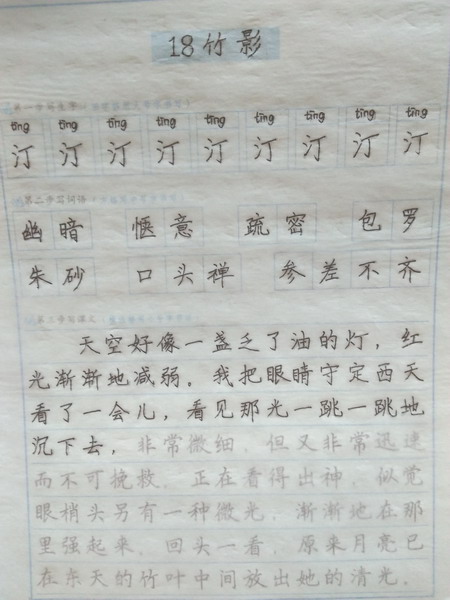 18竹影
第一步写生字
tīng tīng tīng tīng tīng tīng tīng tīng tīng
汀 汀 汀 汀 汀 汀 汀 汀 汀
第二步写词语
幽暗 惬意 疏密 包罗
朱砂 口头禅 参差不齐
第三步写课文
天空好像一盏乏了油的灯，红
光渐渐地减弱。我把眼睛守定西天
看了一会儿，看见那光一跳一跳地
沉下去，非常微细，但又非常迅速
而不可挽救。正在看得出神，似觉
眼梢头另有一种微光，渐渐地在那
里强起来。回头一看，原来月亮已
在东天的竹叶中间放出她的清光。